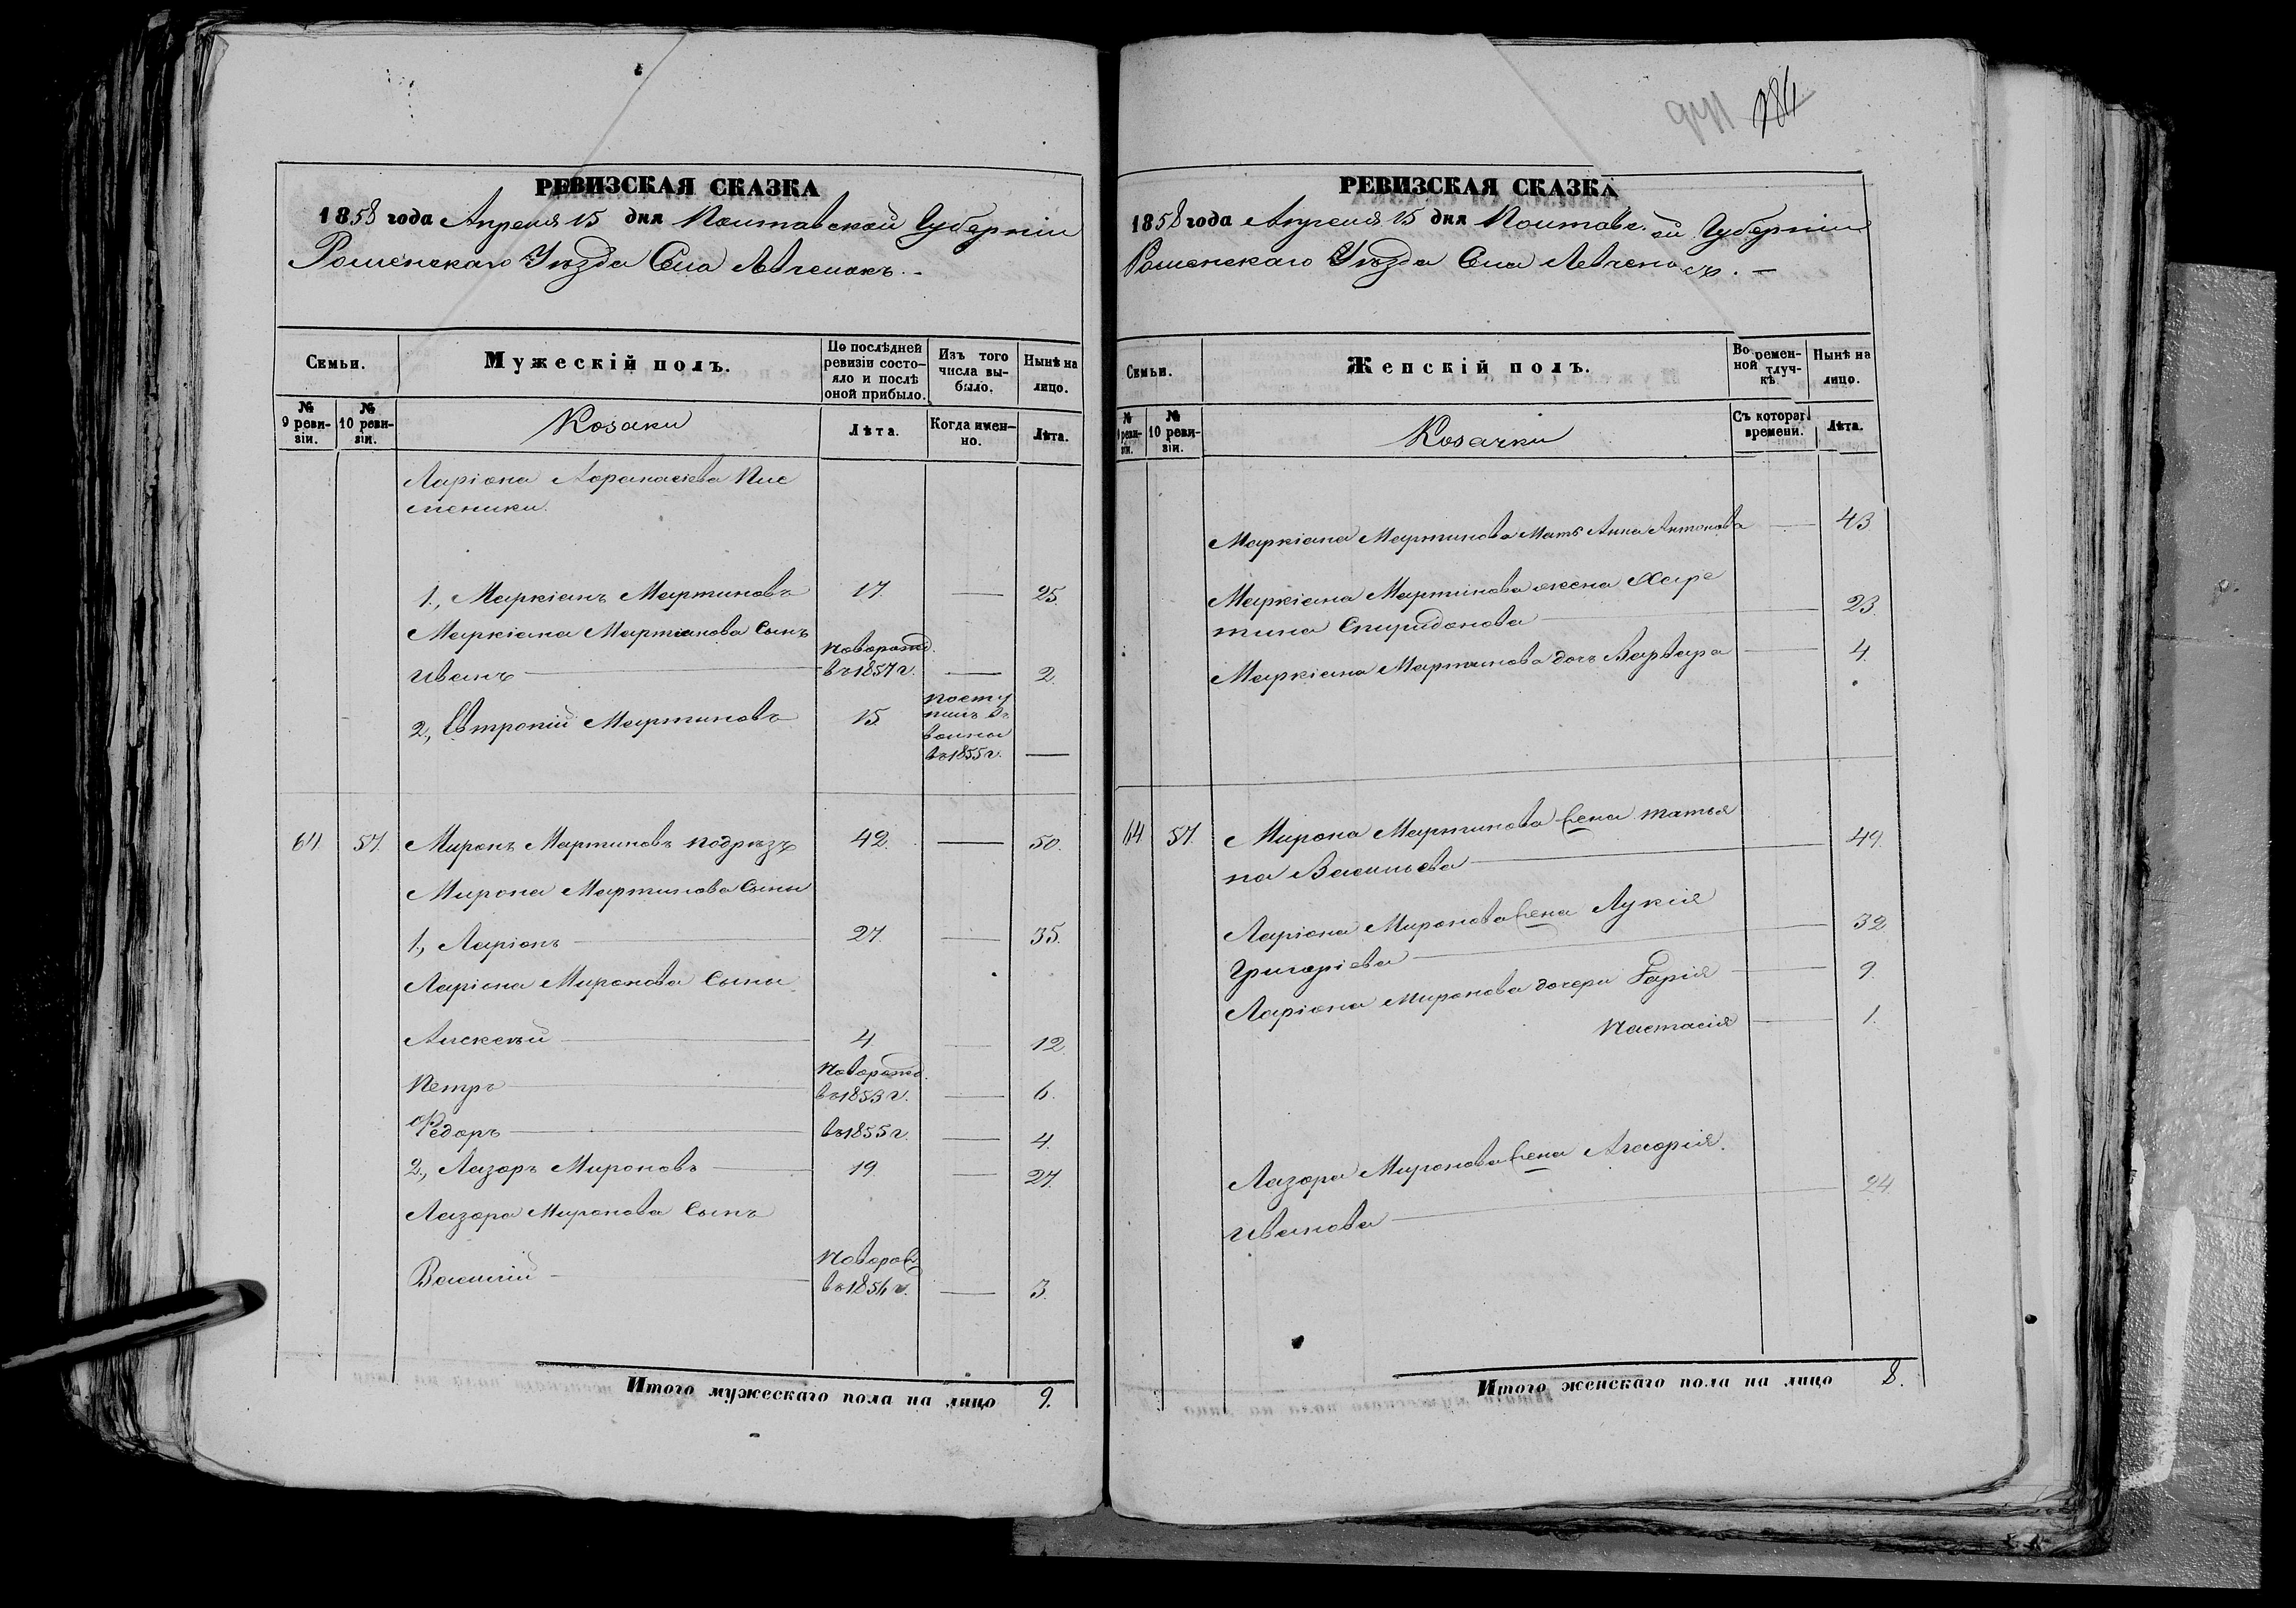 РЕВИЗСКАЯ СКАЗКА
1858 года Апреля 15 дня Полтавской Губерніи
Роменскаго Уѣзда Села Левченокъ. -
Семьи.
Мужескій полъ.
По послѣдней ревизіи состояло и послѣ оной прибыло.
Изъ того числа выбыло.
Нынѣ на лицо.
№ 9 ревизіи.
№ 10 ревизіи.
Козаки
Лѣта.
Когда именно.
Лѣта.
Ларіона Афанасіева Пис
менники.
1., Маркіанъ Мартиновъ 17. — 25.
Маркіана Мартинова Сынъ
Иванъ — новорожд. въ 1857 г. — 2.
2., Евтропій Мартиновъ 15. поступилъ въ воины въ 1855 г. —
64. 57. Миронъ Мартиновъ Подрѣзъ 42. — 50.
Мирона Мартинова Сыны
1., Ларіонъ — 27. — 35.
Ларіона Миронова Сыны
Алексѣй — 4. — 12.
Петръ — новорожд. въ 1853 г. — 6.
Федоръ — въ 1855 г. — 4.
2., Лазорь Мироновъ — 19. — 27.
Лазора Миронова Сынъ
Василій — новорож въ 1856 г. — 3.
Итого мужескаго пола на лицо 9.
284
РЕВИЗСКАЯ СКАЗКА
1858 года Апреля 15 дня Полтавс.ой Губерніи
Роменскаго Уѣзда Села Левчено.съ. —
Семьи.
Женскій полъ.
Во ременной тлучкѣ.
Нынѣ на лицо.
№ 9 ревизіи.
№ 10 ревизіи.
Козачки
Съ котораг. времени.
Лѣта.
Маркіана Мартинова Мать Анна Антонова — 43.
Маркіана Мартинова жена Харе
тина Спиридонова — 23.
Маркіана Мартинова дочь Варвара — 4.
64 57. Мирона Мартинова жена Татья
на Васильева — 49.
Ларіона Миронова жена Лукія
Григоріева — 32.
Ларіона Миронова дочери Дарія — 9.
Настасія — 1.
Лазора Миронова жена Агафія.
Иванова — 24.
Итого женскаго пола на лицо 8.